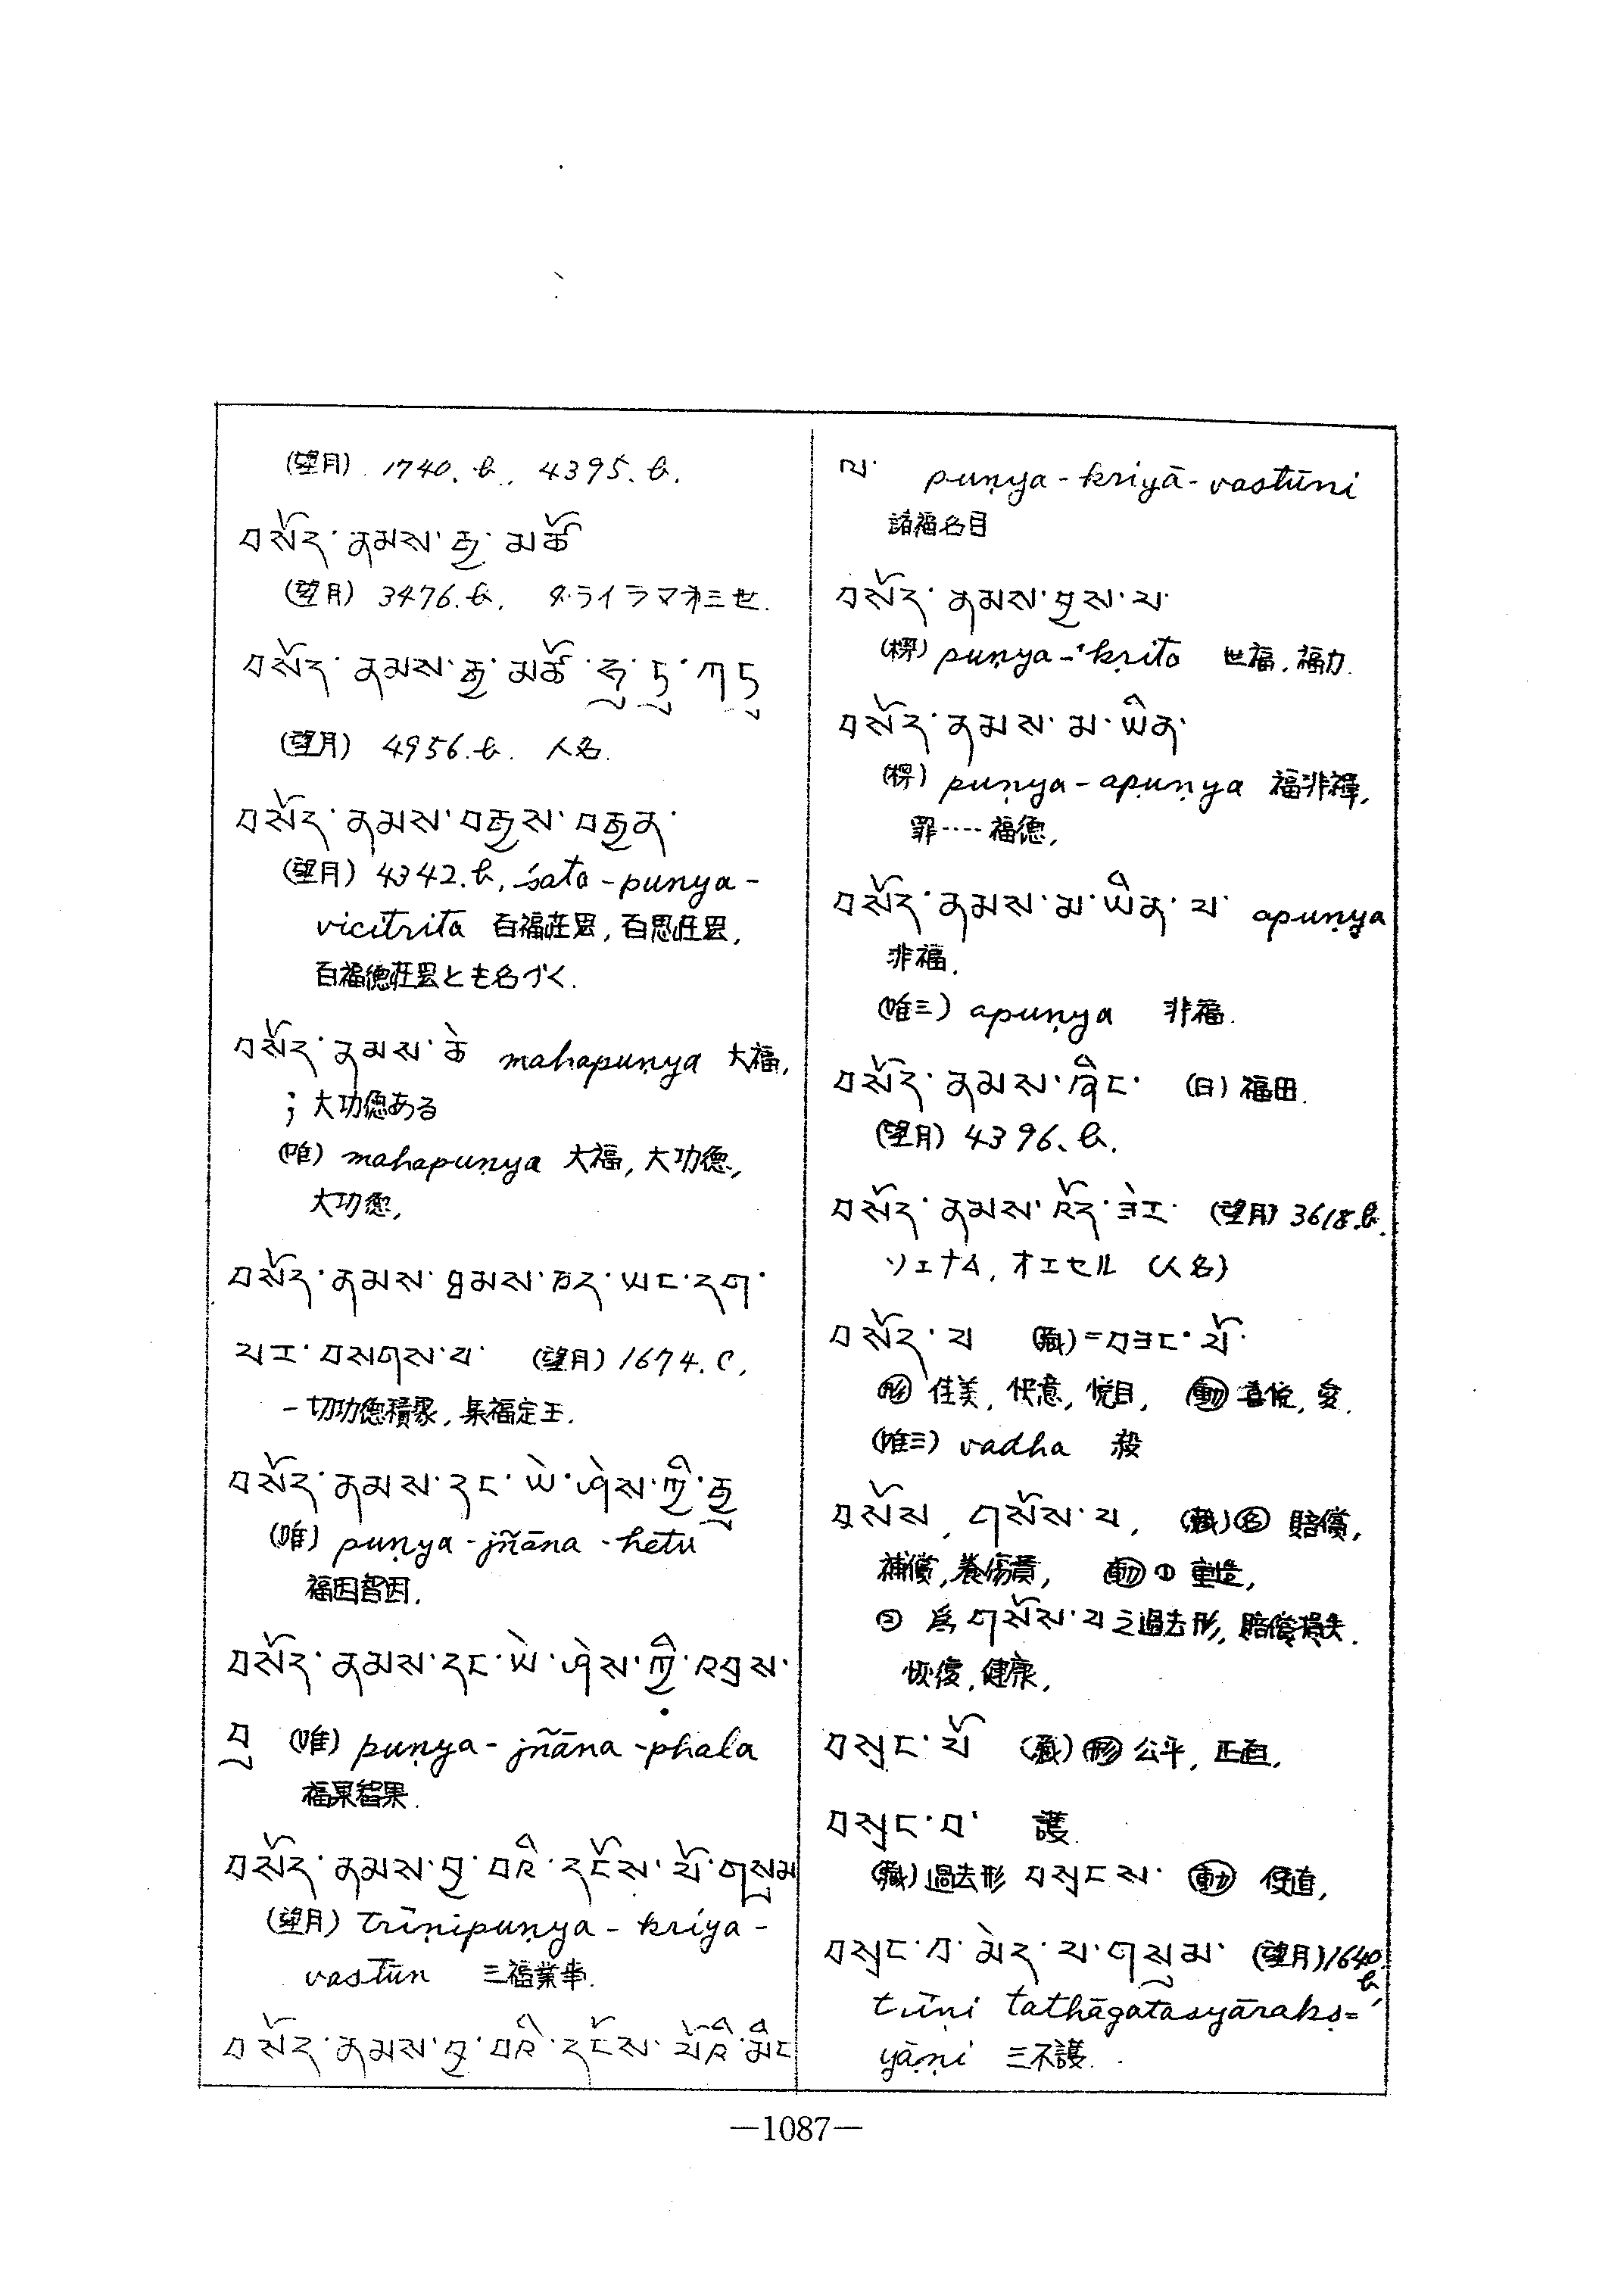 (望月) 1740.b., 4395.b.
བསོད་ནམས་རྒྱ་མཚོ
(望月) 3476.b. ダライラマ才三世.
བསོད་ནམས་རྒྱ་མཚོ་
(望月) 4956.b. 人名.
བསོད་ནམས་བརྒྱས་བརྒྱན་
(望月) 4342.b, śata-punya-
vicitrita 百福荘厳, 百思荘厳,
百福徳荘厳とも名づく.
བསོད་ནམས་ཆེ mahapuṇya 大福,
; 大功徳ある
(唯) mahapuṇya 大福, 大功徳,
大功徳,
བསོད་ནམས་ཐམས་ཅད་ཡང་དག་
པར་བསགས་པ་ (望月) 1674.c,
一切功徳積聚, 集福定王.
བསོད་ནམས་དང་ཡེ་ཤེས་ཀྱི་རྒྱུ
(唯) puṇya-jñāna-hetu
福因智因.
བསོད་ནམས་དང་ཡེ་ཤེས་ཀྱི་འབྲས་
བུ (唯) puṇya-jñāna-phala
福果智果.
བསོད་ནམས་བྱ་བའི་དངོས་པོ་གསུམ
(望月) trīṇipuṇya-kriya-
vastūn 三福業事.
བསོད་ནམས་བྱ་བའི་དངོས་པོའི་མིང
ལ་ puṇya-kriyā-vastūni
諸福名目
བསོད་ནམས་བྱས་པ་
(榠) puṇya-kṛita 世福, 福力.
བསོད་ནམས་མ་ཡིན་
puṇya-apuṇya
罪‥‥福徳,
བསོད་ནམས་མ་ཡིན་པ་ apuṇya
非福.
(唯三) apuṇya 非福.
བསོད་ནམས་ཞིང་ (日) 福田.
(望月) 4396.b.
བསོད་ནམས་འོད་ཟེར་ (望月) 3618.b.
ソェナム, オエセル (人名)
བསོད་པ (蔵)=བཟང་པོ་
㊒ 佳美, 快意, 悦目, 動 喜悦, 愛.
(唯三) vadha 殺
བསོས, གསོས་པ, (蔵) 名 賠償,
補償, 養傷費, 動 ① 重造,
② 為 གསོས་པ 之過去形, 賠償損失.
恢復, 健康,
བསྲང་པོ (蔵) 形 公平, 正直,
བསྲུང་བ་ 護.
(蔵) 過去形 བསྲུངས་ 動
བསྲུང་བ་མེད་པ་གསུམ་ (望月) 1640.
b,
tīṇi tathāgatasyārakṣ=
yāṇi 三不護.
—1087—